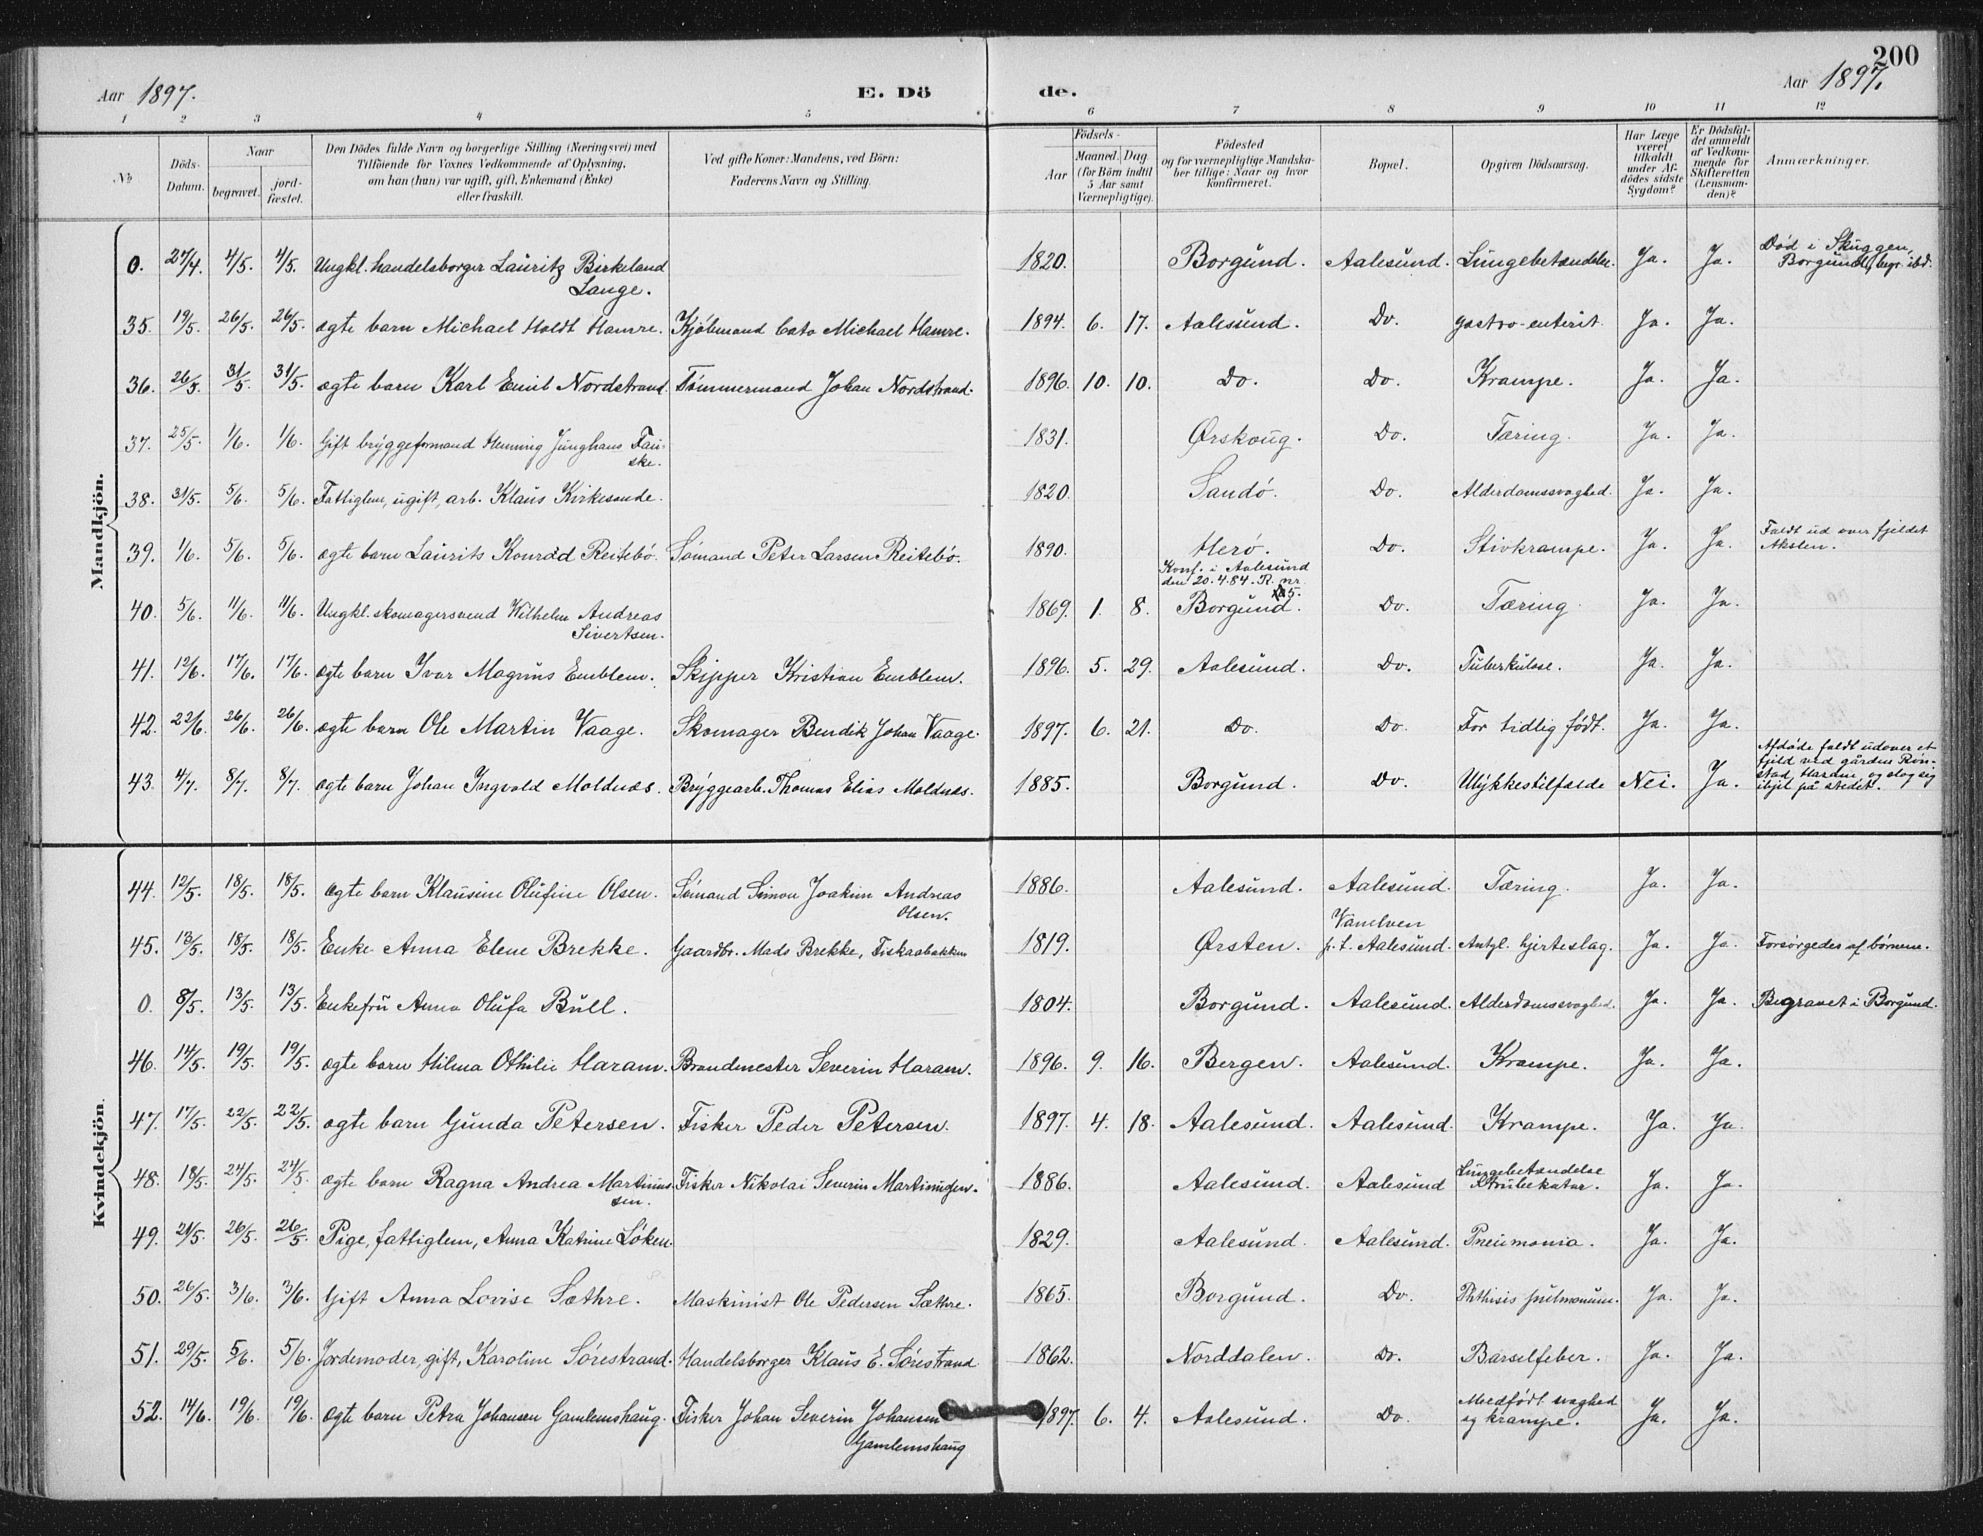 200
Aar 1897. E. Dö de. Aar 1897.
1 2 3 4 5 6 7 8 9 10 11 12
No Döds-Datum. Naar begravet. jord-fæstet. Den Dödes fulde Navn og borgerlige Stilling (Næringsvei) med Tilföiende for Voxnes Vedkommende af Oplysning, om han (hun) var ugift, gift, Enkemand (Enke) eller fraskilt. Ved gifte Koner: Mandens, ved Börn: Faderens Navn og Stilling. Födsels- Aar Maaned. Dag (for Börn indtil 5 Aar samt Værnepligtige). Födested og for værnepligtige Mandskaber tillige: Naar og hvor konfirmeret. Bopæl. Opgiven Dödsaarsag. Har Læge været tilkaldt under Afdödes sidste Sygdom? Er Dödsfaldet anmeldt af Vedkommende for Skifteretten (Lensmanden)? Anmærkninger.
Mandkjön.
0. 27/4. 4/5. 4/5. Ungkl. handelsborger Lauritz Birkeland Lange. 1820. Borgund. Aalesund. Lungebetændelse. Ja. Ja. Död i Skuggen, Borgund, begr. ibd.
35. 19/5. 26/5. 26/5. ægte barn Michael Holdt Hamre. Kjöbmand Cato Michael Hamre. 1894. 6. 17. Aalesund. Do. gastro-enterit. Ja. Ja.
36. 26/5. 31/5. 31/5. ægte barn Karl Emil Nordstrand. Tömmermand Johan Nordstrand. 1896. 10. 10. Do. Do. Krampe. Ja. Ja.
37. 25/5. 1/6. 1/6. Gift bryggeformand Henning Junghans Fauske. 1831. Ørskoug. Do. Tæring. Ja. Ja.
38. 31/5. 5/6. 5/6. Fattiglem, ugift, arb. Klaus Kirkesande. 1820. Sandö. Do. Alderdomssvaghed. Ja. Ja.
39. 1/6. 5/6. 5/6. ægte barn Laurits Konrad Reitebö. Sömand Peter Larsen Reitebö. 1890. Herö. Do. Stivkrampe. Ja. Ja. Faldt ud over fjeldet Akslen.
40. 5/6. 11/6. 11/6. Ungkl. skomagersvend Wilhelm Andreas Sivertsen. 1869. 1. 8. Konf. i Aalesund den 20.4.84. R. nr 5. Borgund. Do. Tæring. Ja. Ja.
41. 12/6. 17/6. 17/6. ægte barn Ivar Magnus Emblem. Skipper Kristian Emblem. 1896. 5. 29. Aalesund. Do. Tuberkulose. Ja. Ja.
42. 22/6. 26/6. 26/6. ægte barn Ole Martin Vaage. Skomager Bendik Johan Vaage. 1897. 6. 21. Do. Do. For tidlig födt. Ja. Ja.
43. 4/7. 8/7. 8/7. ægte barn Johan Ingvald Moldnæs. Bryggearb. Thomas Elias Moldnæs. 1885. Borgund. Do. Ulykkestilfælde Nei. Ja. Afdöde faldt udover et fjeld ved gården Rönstad, Haram, og slog sig ihjel på stedet.
Kvindekjön.
44. 12/5. 18/5. 18/5. ægte barn Klausine Olufine Olsen. Sömand Simon Joakim Andreas Olsen. 1886. Aalesund. Aalesund. Tæring. Ja. Ja.
45. 13/5. 18/5. 18/5. Enke Anna Elene Brekke. Gaardbr. Mads Brekke, Fiskaabakken 1819. Ørsten. Vanelven p.t. Aalesund. Antgl. hjerteslag. Ja. Ja. Forsörgedes af börnene.
0. 8/5. 13/5. 13/5. Enkefru Anna Olufa Bull. 1804. Borgund. Aalesund. Alderdomssvaghed. Ja. Ja. Begravet i Borgund.
46. 14/5. 19/5. 19/5. ægte barn Hilma Othilie Haram. Brandmester Severin Haram. 1896. 9. 16. Bergen. Aalesund. Krampe. Ja. Ja.
47. 17/5. 22/5. 22/5. ægte barn Gunda Petersen. Fisker Peder Petersen. 1897. 4. 18. Aalesund. Aalesund. Krampe. Ja. Ja.
48. 18/5. 24/5. 24/5. ægte barn Ragna Andrea Martinussen. Fisker Nikolai Severin Martinusen. 1886. Aalesund. Aalesund Lungebetændelse Strubekatar. Ja. Ja.
49. 21/5. 26/5. 26/5. Pige, fattiglem, Anna Katrine Löken 1829. Aalesund. Aalesund. Pneumonia. Ja. Ja.
50. 26/5. 3/6. 3/6. Gift Anna Lovise Sæthre. Maskinist Ole Pedersen Sæthre. 1865. Borgund. Do. Phthisis pulmonum. Ja. Ja.
51. 29/5. 5/6. 5/6. Jordemoder, gift, Karoline Sörestrand. Handelsborger Klaus E. Sörestrand 1862. Norddalen. Do. Barselfeber. Ja. Ja.
52. 14/6. 19/6. 19/6. ægte barn Petra Johansen Gamlemshaug. Fisker Johan Severin Johansen Gamlemshaug 1897. 6. 4. Aalesund. Do. Medfödt svaghed og krampe. Ja. Ja.